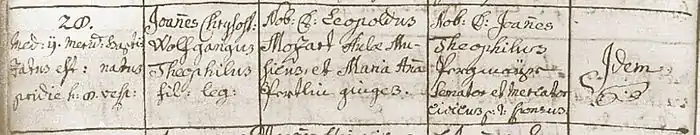 28.
med: ij. merid: baptiz
Natus est: natus
pridie h: 8. vesp:
Joañes Chrysost:
Wolfgangus
Theophilus
fil: leg:
Nob: D: Leopoldus
Mozart Aulæ Mu-
sicus, et Maria Aña
Pertlin giuges.
Nob: D: Joañes
Theophilus
Pergmayr
Senator et Mercator
civicus p: t: sponsus
Idem